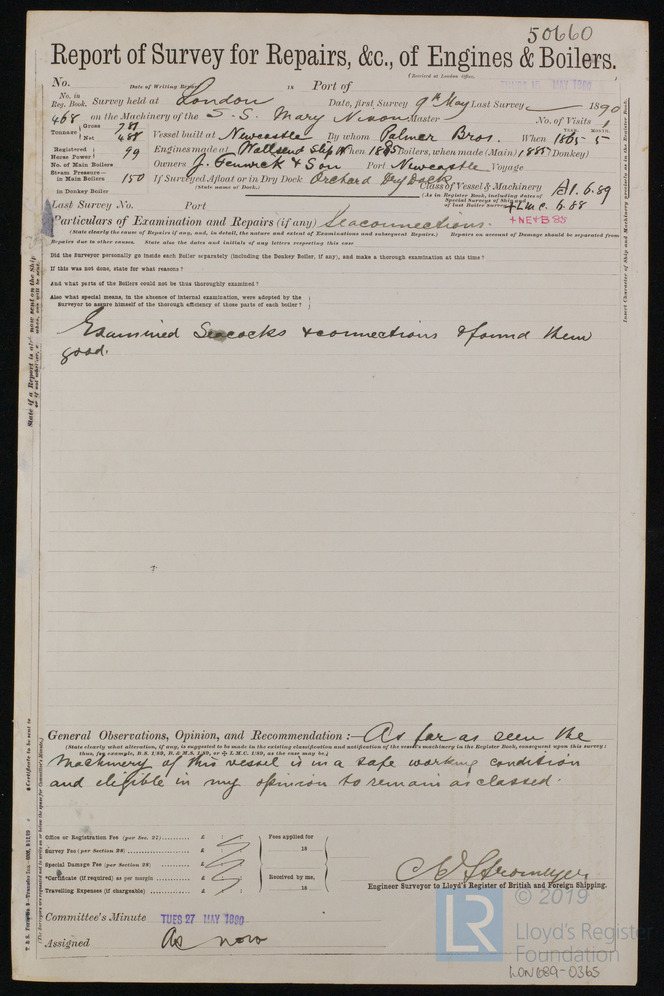 50660
Report of Survey for Repairs, &c., of Engines & Boilers.
(Received at London Office, 15 MAY 1890
No. Date of Writing Report 18 Port of
No. in Reg. Book. Survey held at London Date, first Survey 9th May Last Survey 1890
468 on the Machinery of the S.S. Mary Nixon Master No. of Visits 1
Tonnage Gross 781 Net 488 Vessel built at Newcastle By whom Palmer Bros. When 1865-5 YEAR. MONTH.
Registered Horse Power 99 Engines made at Wallsend Slip When 1885 Boilers, when made (Main) 1885 (Donkey)
No. of Main Boilers Owners J. Fenwick & Son Port Newcastle Voyage
Steam Pressure— in Main Boilers 150 If Surveyed Afloat or in Dry Dock Orchard Dry Dock
(State name of Dock.)
in Donkey Boiler
Class of Vessel & Machinery A1. 6.89
(As in Register Book, including dates of Special Surveys of Ship and of last Boiler Survey
+LMC. 6.88
+NE+B 85
Last Survey No. Port
Particulars of Examination and Repairs (if any) Seaconnections.
(State clearly the cause of Repairs if any, and, in detail, the nature and extent of Examinations and subsequent Repairs.) Repairs on account of Damage should be separated from
Repairs due to other causes. State also the dates and initials of any letters respecting this case
Did the Surveyor personally go inside each Boiler separately (including the Donkey Boiler, if any), and make a thorough examination at this time?
If this was not done, state for what reasons?
And what parts of the Boilers could not be thus thoroughly examined?
Also what special means, in the absence of internal examination, were adopted by the
Surveyor to assure himself of the thorough efficiency of those parts of each boiler?
Examined Seacocks & connections & found them
good.
General Observations, Opinion, and Recommendation :— As far as seen the
(State clearly what alteration, if any, is suggested to be made in the existing classification and notification of the vessel's machinery in the Register Book, consequent upon this survey:
thus, for example, B.S. 1/89, B. & M.S. 1/89, or ✠ L.M.C. 1/89, as the case may be.)
Machinery of this vessel is in a safe working condition
and eligible in my opinion to remain as classed.
Office or Registration Fee (per Sec. 27) £ : :
Survey Fee (per Section 28) £ : :
Special Damage Fee (per Section 28) £ : :
*Certificate (if required) as per margin £ : :
Travelling Expenses (if chargeable) £ : :
Fees applied for
18
Received by me,
18
C E Stromeyer
Engineer Surveyor to Lloyd's Register of British and Foreign Shipping.
Committee's Minute TUES 27 MAY 1890
Assigned As now
© 2019
LR
Lloyd's Register
Foundation
LON689-0365